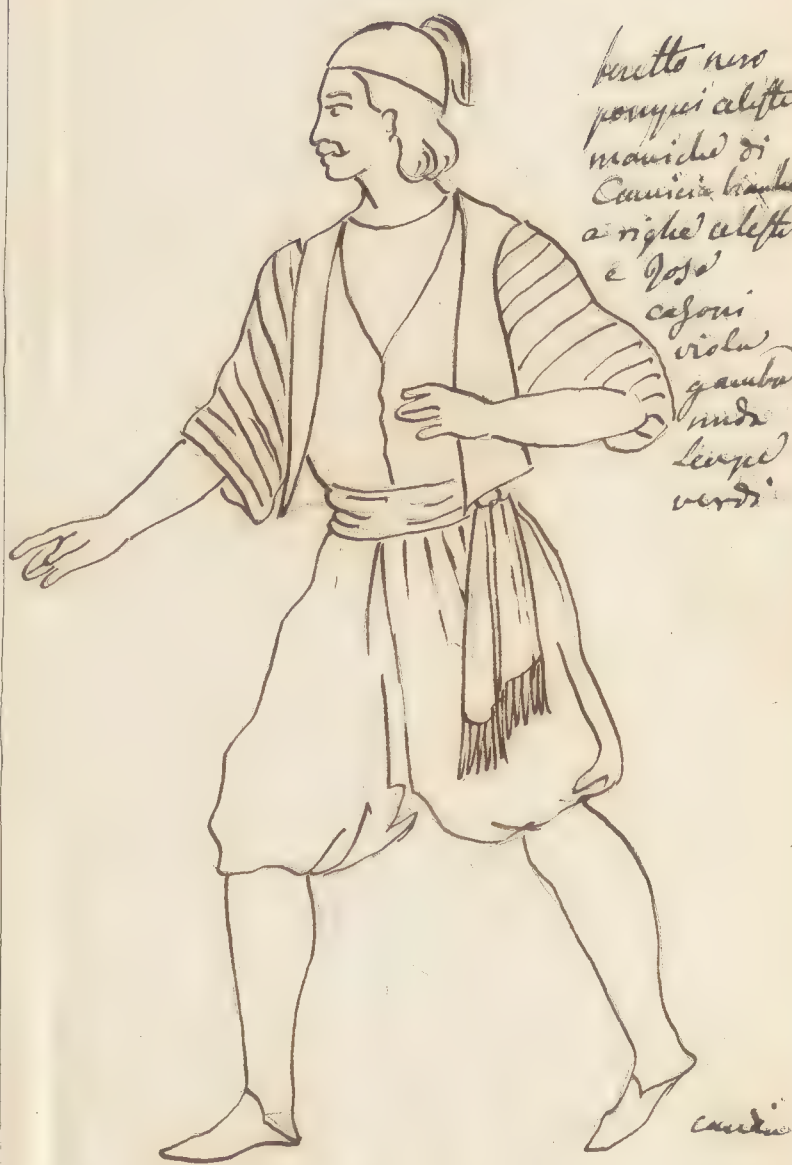 beretto nero
pompei celeste
maniche di
Camicia bianche
a righe celeste
e Rosa
casoni
viola
gamba
nuda
scarpe
verdi